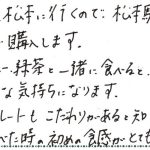 松本に行くので、松本駅
購入します。
、抹茶と一緒に食べると、
な気持ちになります。
レートもこだわりがあると知
べた時の初めの食感がとても